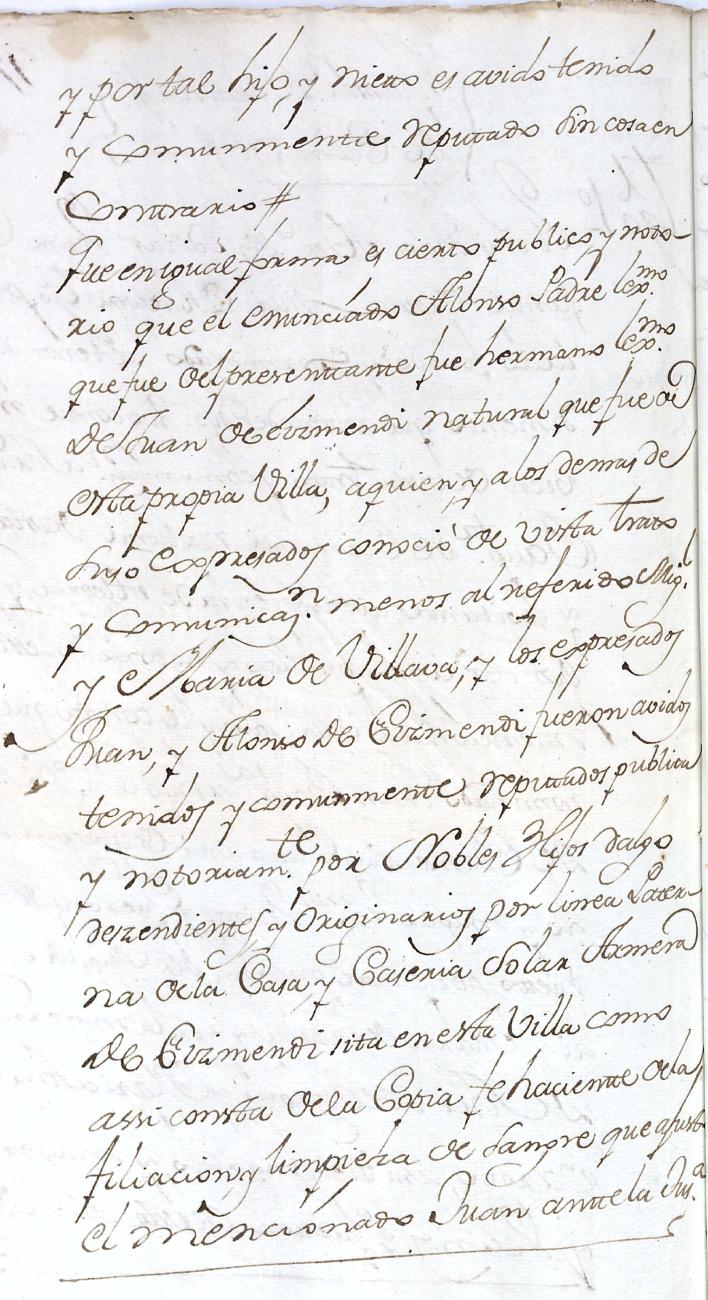 y por tal hijo, y nieto es avido tenido
y Comunmentte reputado sin cosa en
Conttrario #
Que en igual forma es cierto publico, y noto-
rio que el enunciado Alonso Padre lexmo.
que fue del presenttante fue hermano lexmo.
de Juan de Eizmendi natural que fue de
esta propia Villa, a quien, y a los demas de
suso expresados conoció de vista tratto
y Comunicazn. menos al referido Migl.
y Maria de Villava, y los expresados
Juan, y Alonso de Eizmendi fueron avidos
tenidos y comunmente reputados publica
y notoriamte. por Nobles Hijos dalgo
deszendientes, y Originarios por linea Pater-
na de la Casa, y Caseria Solar Armera
de Eizmendi sita en esta Villa como
assi consta de la Copia fehaciente de la
filiacion, y limpieza de sangre que ajusto
el mencionado Juan antte la Jusa.